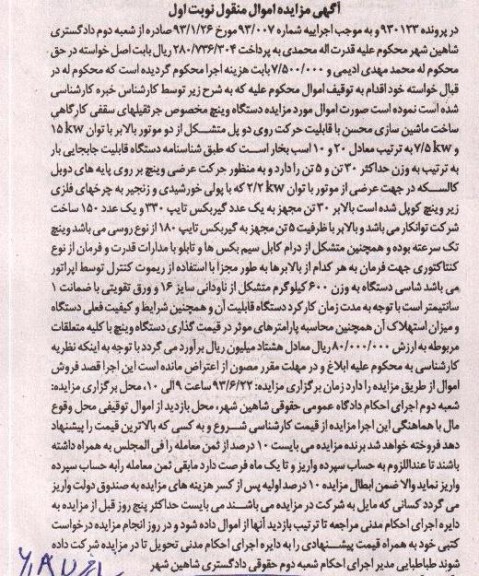 آگهی مزایده اموال منقول نوبت اول
در پرونده ۹۳۰۱۲۳ و به موجب اجراییه شماره ۹۳/۰۰۷ مورخ ۹۳/۱/۲۶ صادره از شعبه دوم دادگستری
شاهین شهر محکوم علیه قدرت اله محمدی به پرداخت ۲۸۰/۷۳۶/۳۰۴ ریال بابت اصل خواسته در حق
محکوم له محمد مهدی ادیمی و ۷/۵۰۰/۰۰۰ بابت هزینه اجرا محکوم گردیده است که محکوم له در
قبال خواسته خود اقدام به توقیف اموال محکوم علیه که به شرح زیر توسط کارشناس خبره کارشناسی
شده است نموده است صورت اموال مورد مزایده دستگاه وینچ مخصوص جرثقیلهای سقفی کارگاهی
ساخت ماشین سازی محسن با قابلیت حرکت روی دو پل متشکل از دو موتور بالابر با توان ۱۵ kw
و ۷/۵ kw به ترتیب معادل ۲۰ و ۱۰ اسب بخار است که طبق شناسنامه دستگاه قابلیت جابجایی بار
به ترتیب به وزن حداکثر ۳۰ تن و ۵ تن را دارد و به منظور حرکت عرضی وینچ بر روی پایه های دوبل
کالسکه در جهت عرضی از موتور با توان ۲/۲ kw که با پولی خورشیدی و زنجیر به چرخهای فلزی
زیر وینچ کوپل شده است بالابر ۳۰ تن مجهز به یک عدد گیربکس تایپ ۳۳۰ و یک عدد ۱۵۰ ساخت
شرکت توانکار می باشد و بالابر با ظرفیت ۵ تن مجهز به گیربکس تایپ ۱۸۰ از نوع روسی می باشد وینچ
تک سرعته بوده و همچنین متشکل از درام کابل سیم بکس ها و تابلو با مدارات قدرت و فرمان از نوع
کنتاکتوری جهت فرمان به هر کدام از بالابرها به طور مجزا با استفاده از ریموت کنترل توسط اپراتور
می باشد شاسی دستگاه به وزن ۶۰۰ کیلوگرم متشکل از ناودانی سایز ۱۶ و ورق تقویتی با ضخامت ۱
سانتیمتر است با توجه به مدت زمان کارکرد دستگاه قابلیت آن و همچنین شرایط و کیفیت فعلی دستگاه
و میزان استهلاک آن همچنین محاسبه پارامترهای موثر در قیمت گذاری دستگاه وینچ با کلیه متعلقات
مربوطه به ارزش ۸۰/۰۰۰/۰۰۰ ریال معادل هشتاد میلیون ریال برآورد می گردد با توجه به اینکه نظریه
کارشناسی به محکوم علیه ابلاغ و در مهلت مقرر مصون از اعتراض مانده است این اجرا قصد فروش
اموال از طریق مزایده را دارد زمان برگزاری مزایده: ۹۳/۶/۲۲ ساعت ۹ الی ۱۰، محل برگزاری مزایده:
شعبه دوم اجرای احکام دادگاه عمومی حقوقی شاهین شهر، محل بازدید از اموال توقیفی محل وقوع
مال با هماهنگی این اجرا مزایده از قیمت کارشناسی شروع و به کسی که بالاترین قیمت را پیشنهاد
دهد فروخته خواهد شد برنده مزایده می بایست ۱۰ درصد از ثمن معامله را فی المجلس به همراه داشته
باشند تا عنداللزوم به حساب سپرده واریز و تا یک ماه فرصت دارد مابقی ثمن معامله را به حساب سپرده
واریز نماید والا ضمن ابطال مزایده ۱۰ درصد اولیه پس از کسر هزینه های مزایده به صندوق دولت واریز
می گردد کسانی که مایل به شرکت در مزایده می باشند می بایست حداکثر پنج روز قبل از مزایده به
دایره اجرای احکام مدنی مراجعه تا ترتیب بازدید آنها از اموال داده شود و در روز انجام مزایده درخواست
کتبی خود به همراه قیمت پیشنهادی را به دایره اجرای احکام مدنی تحویل تا در مزایده شرکت داده
شوند طباطبایی مدیر اجرای احکام شعبه دوم حقوقی دادگستری شاهین شهر